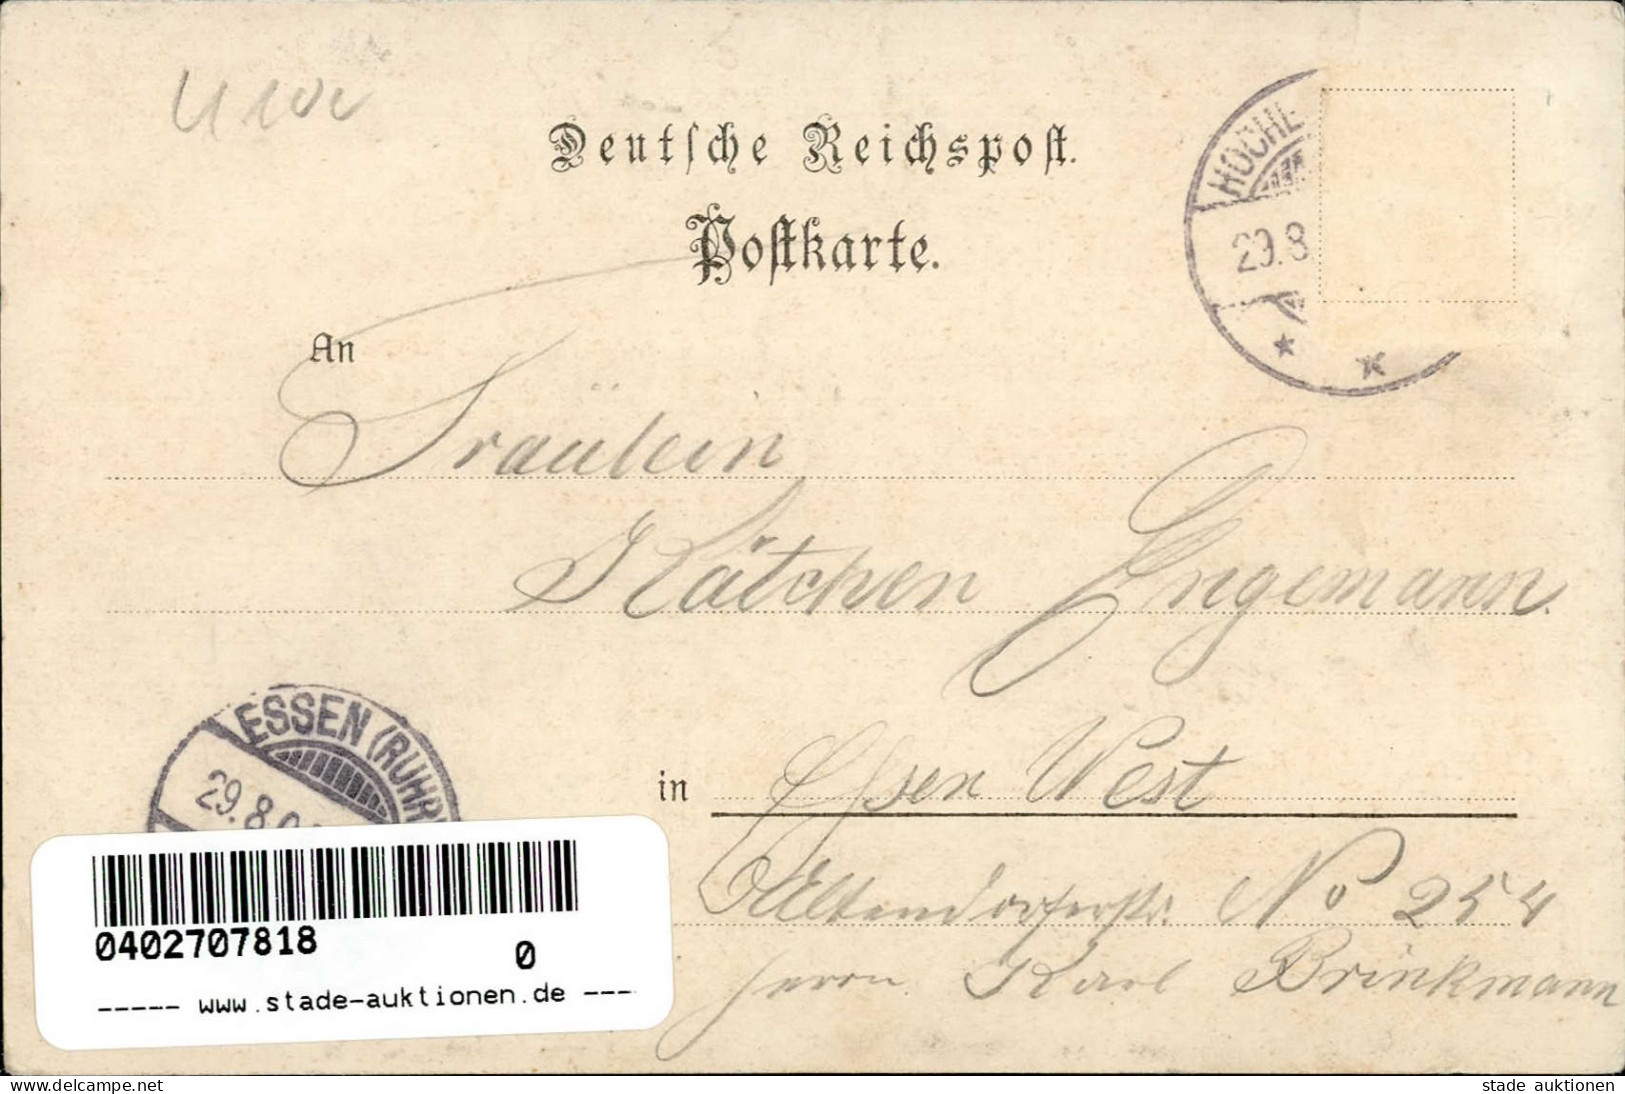 U 100
Deutsche Reichspost.
Postkarte.
HOCHE
29.8
* K
An
Fräulein
Kätchen Engemann.
ESSEN (RUHR
29.8.0
in Essen West
Altendorferstr. No 254
Herrn Karl Brinkmann
0402707818
0
----- www.stade-auktionen.de ---
www.delcampe.net
stade auktionen